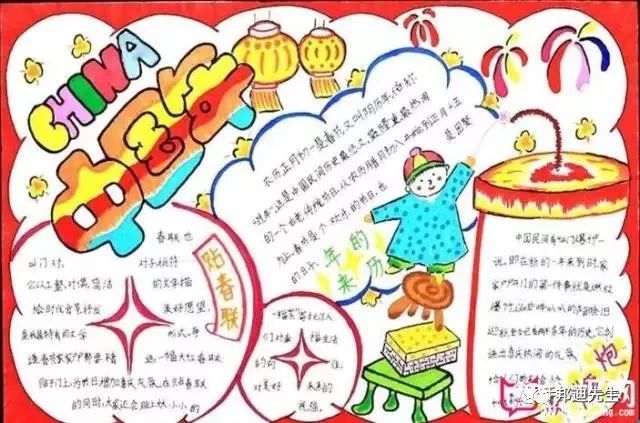 CHINA
中国年
农历正月初一是春节,又叫阴历年,俗称
"过年".这是中国民间历史最悠久,最隆重最热闹
的一个古老传统节日.从农历腊月初八一直到正月十五
春节是个欢乐的节日.也是团聚
的日子.
年的
来历
春联也
叫门对,对子,桃符
它以工整,对偶,简洁的文字描
绘时代背景抒发美好愿望,
是我国特有的文学形式,每
逢春节家家户户都要精选一幅大红春联
贴于门上,为节日增加喜庆气氛,在贴春联
的同时,大家还会贴上大小小的
贴春联
"福"字寄托了人
们对幸福生活
的向往
对美好未来的
祝福.
中国民间有"开门爆竹"一
说.即在新的一年来到时,家
家户户开门的第一件事就是燃放
爆竹
迎新,至今已有两千多年的历史,它创
造出喜庆热闹的气氛
给人们
炮
邦迪先生